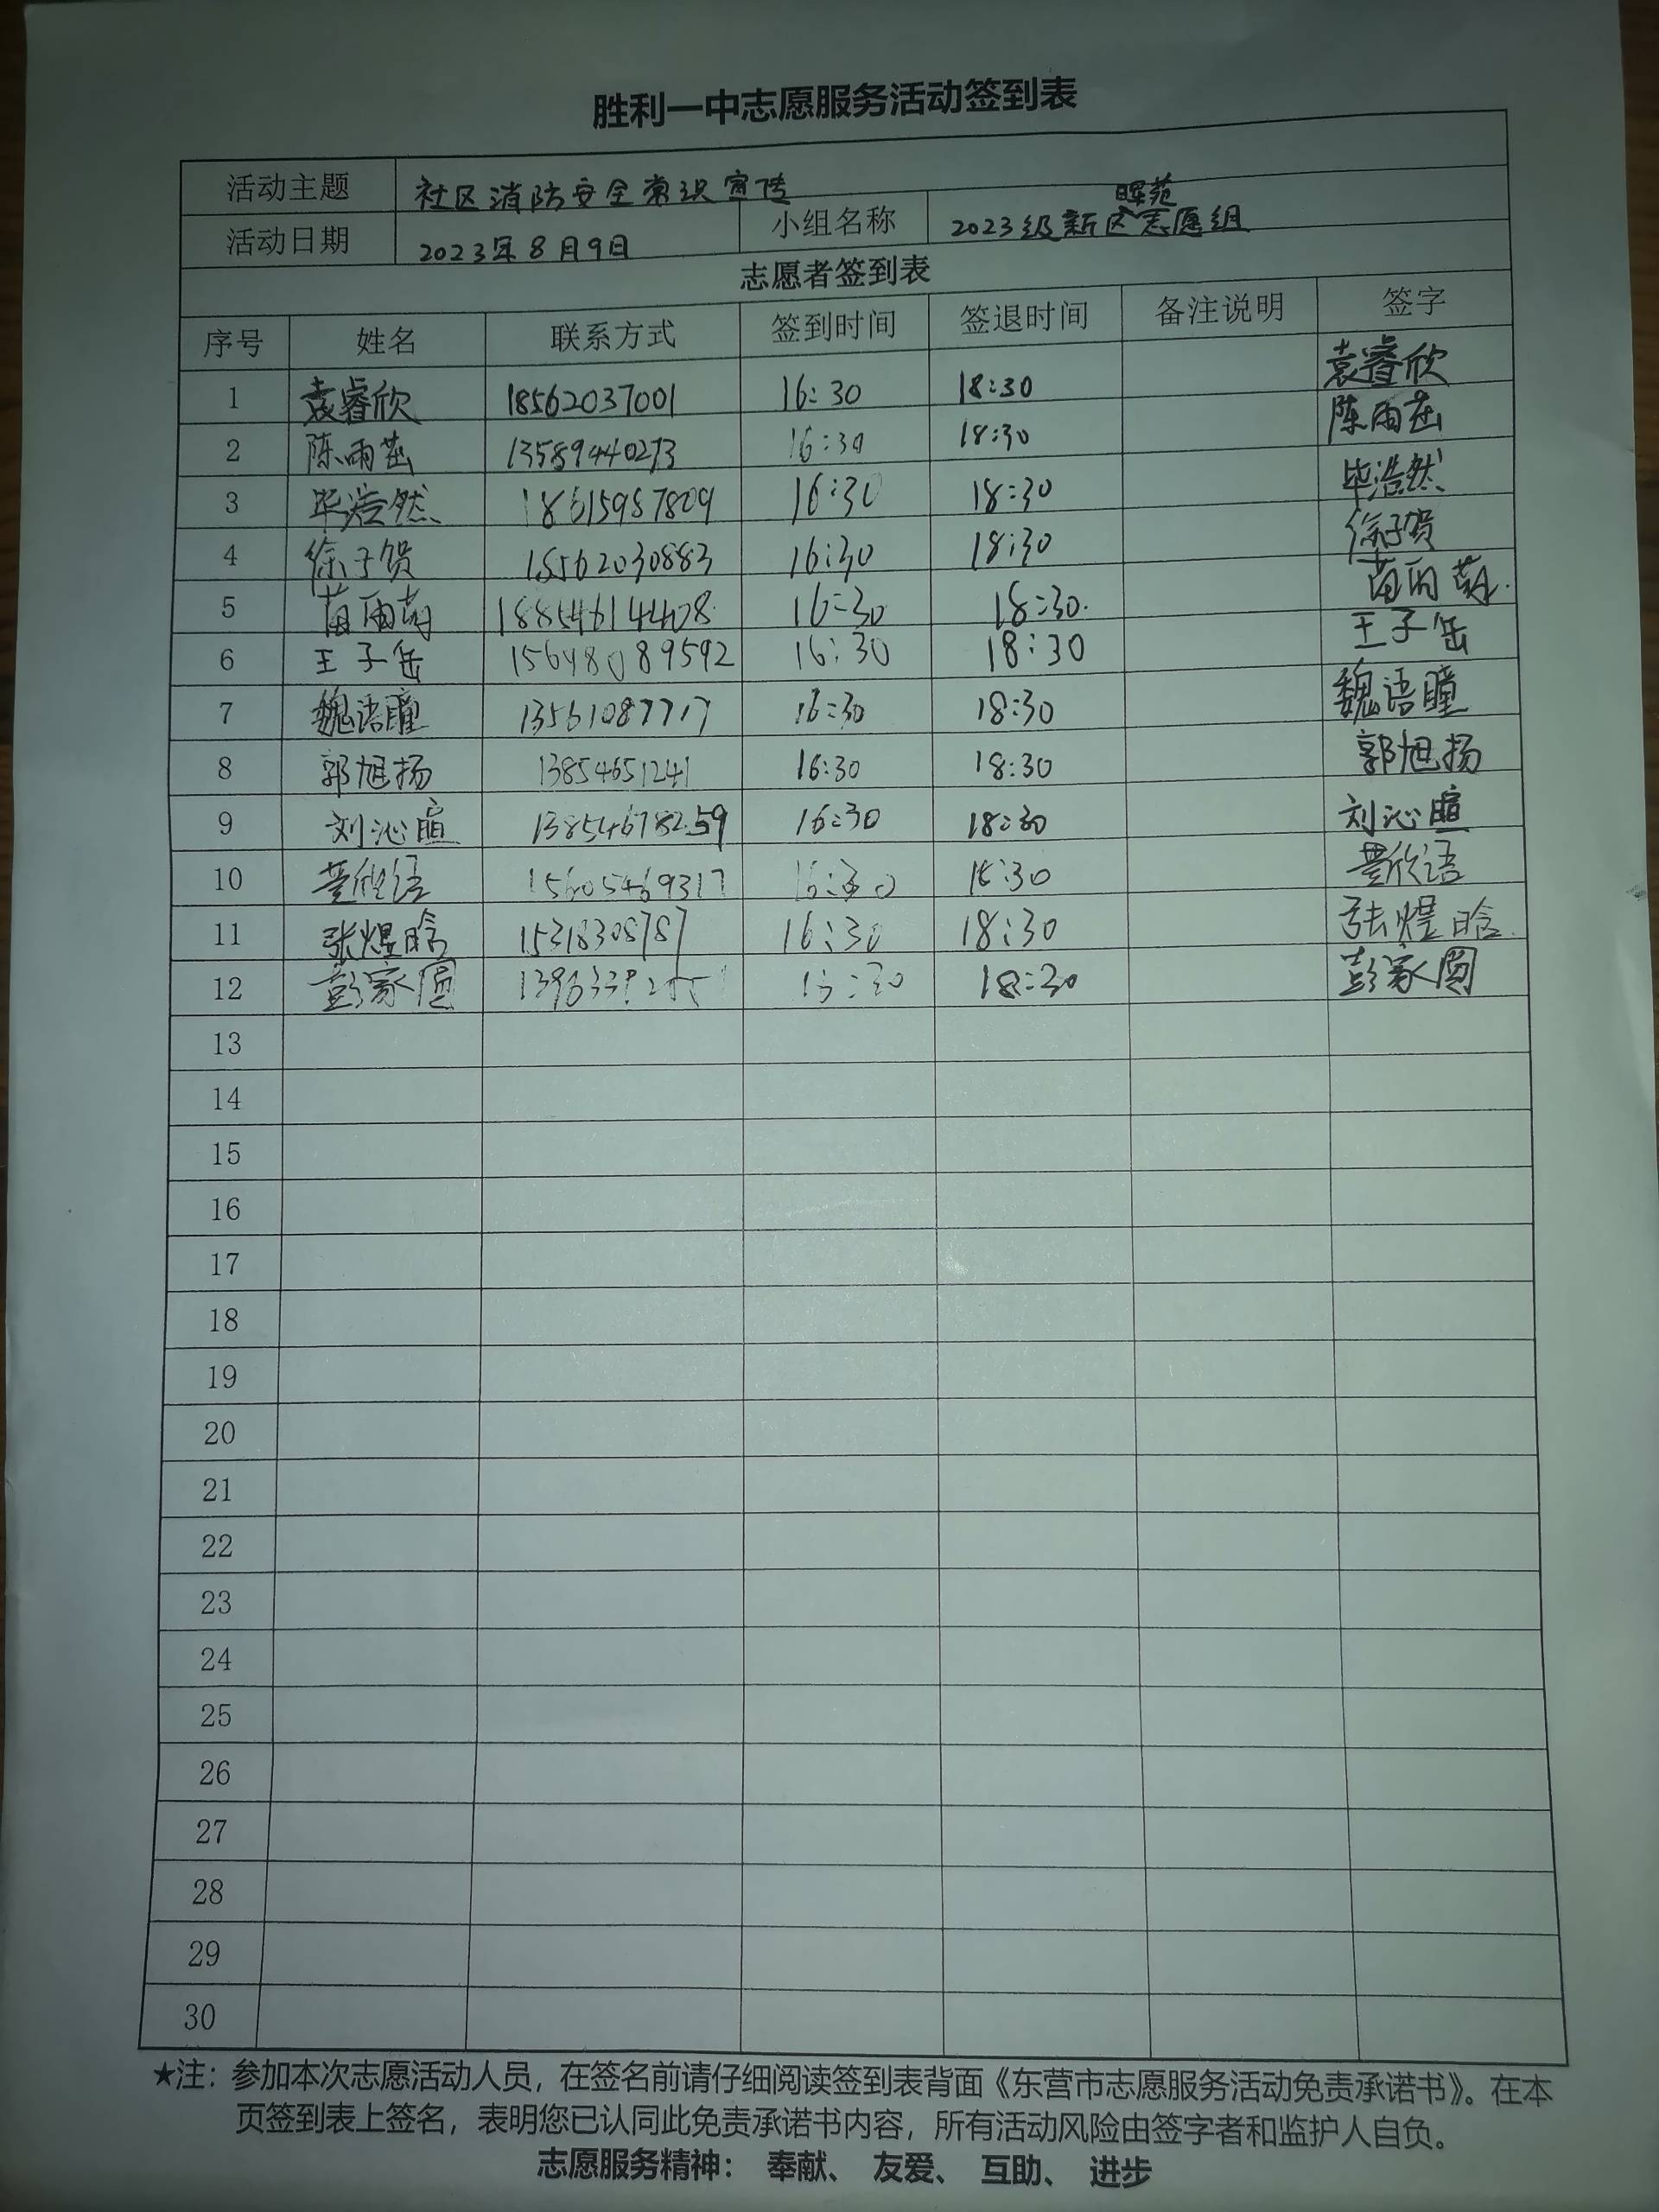 胜利一中志愿服务活动签到表
活动主题 社区消防安全常识宣传
活动日期 2023年8月9日 小组名称 2023级新区晖苑志愿组
志愿者签到表
序号 姓名 联系方式 签到时间 签退时间 备注说明 签字
1 袁睿欣 18562037001 16:30 18:30 袁睿欣
2 陈雨茁 13589440273 16:30 18:30 陈雨茁
3 毕浩然 18615987809 16:30 18:30 毕浩然
4 徐子贺 18562030883 16:30 18:30 徐子贺
5 苗雨萌 18854614408 16:30 18:30 苗雨萌
6 王子缶 15648089592 16:30 18:30 王子缶
7 魏语瞳 13561087717 16:30 18:30 魏语瞳
8 郭旭扬 13854651241 16:30 18:30 郭旭扬
9 刘沁暄 13854678259 16:30 18:30 刘沁暄
10 欣语 15605469317 16:30 18:30 欣语
11 张煜晗 15318308787 16:30 18:30 张煜晗
12 彭家圆 18:30 彭家圆
13
14
15
16
17
18
19
20
21
22
23
24
25
26
27
28
29
30
★注：参加本次志愿活动人员，在签名前请仔细阅读签到表背面《东营市志愿服务活动免责承诺书》。在本
页签到表上签名，表明您已认同此免责承诺书内容，所有活动风险由签字者和监护人自负。
志愿服务精神： 奉献、 友爱、 互助、 进步